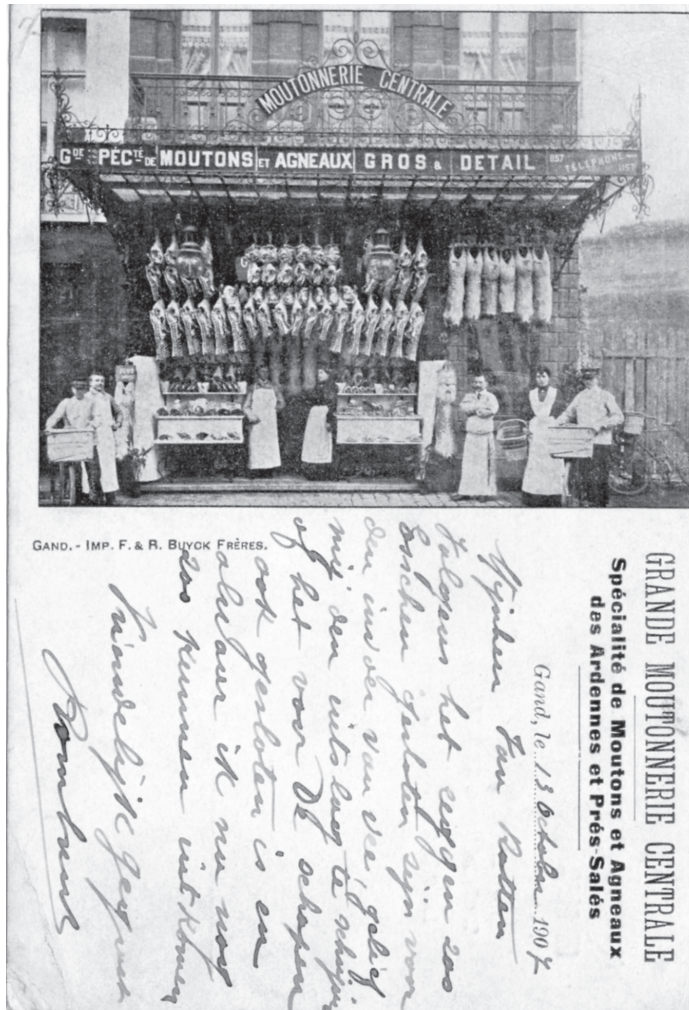 MOUTONNERIE CENTRALE
GDE SPÉCTÉ DE MOUTONS ET AGNEAUX GROS & DETAIL 1157 TÉLÉPHONE 1157
GAND. - IMP. F. & R. BUYCK FRÈRES.
GRANDE MOUTONNERIE CENTRALE
Spécialité de Moutons et Agneaux
des Ardennes et Prés-Salés
Gand, le 13 October 1907
Mijnheer Van
Volgens het zeggen zoo
gesloten zijn voor
den invoer van vee, gelief
mij den uitslag te
of het voor de schapen
ook gesloten is en
ik nu nog
zoo kunnen
Vriendelijk gegroet
Rombaut